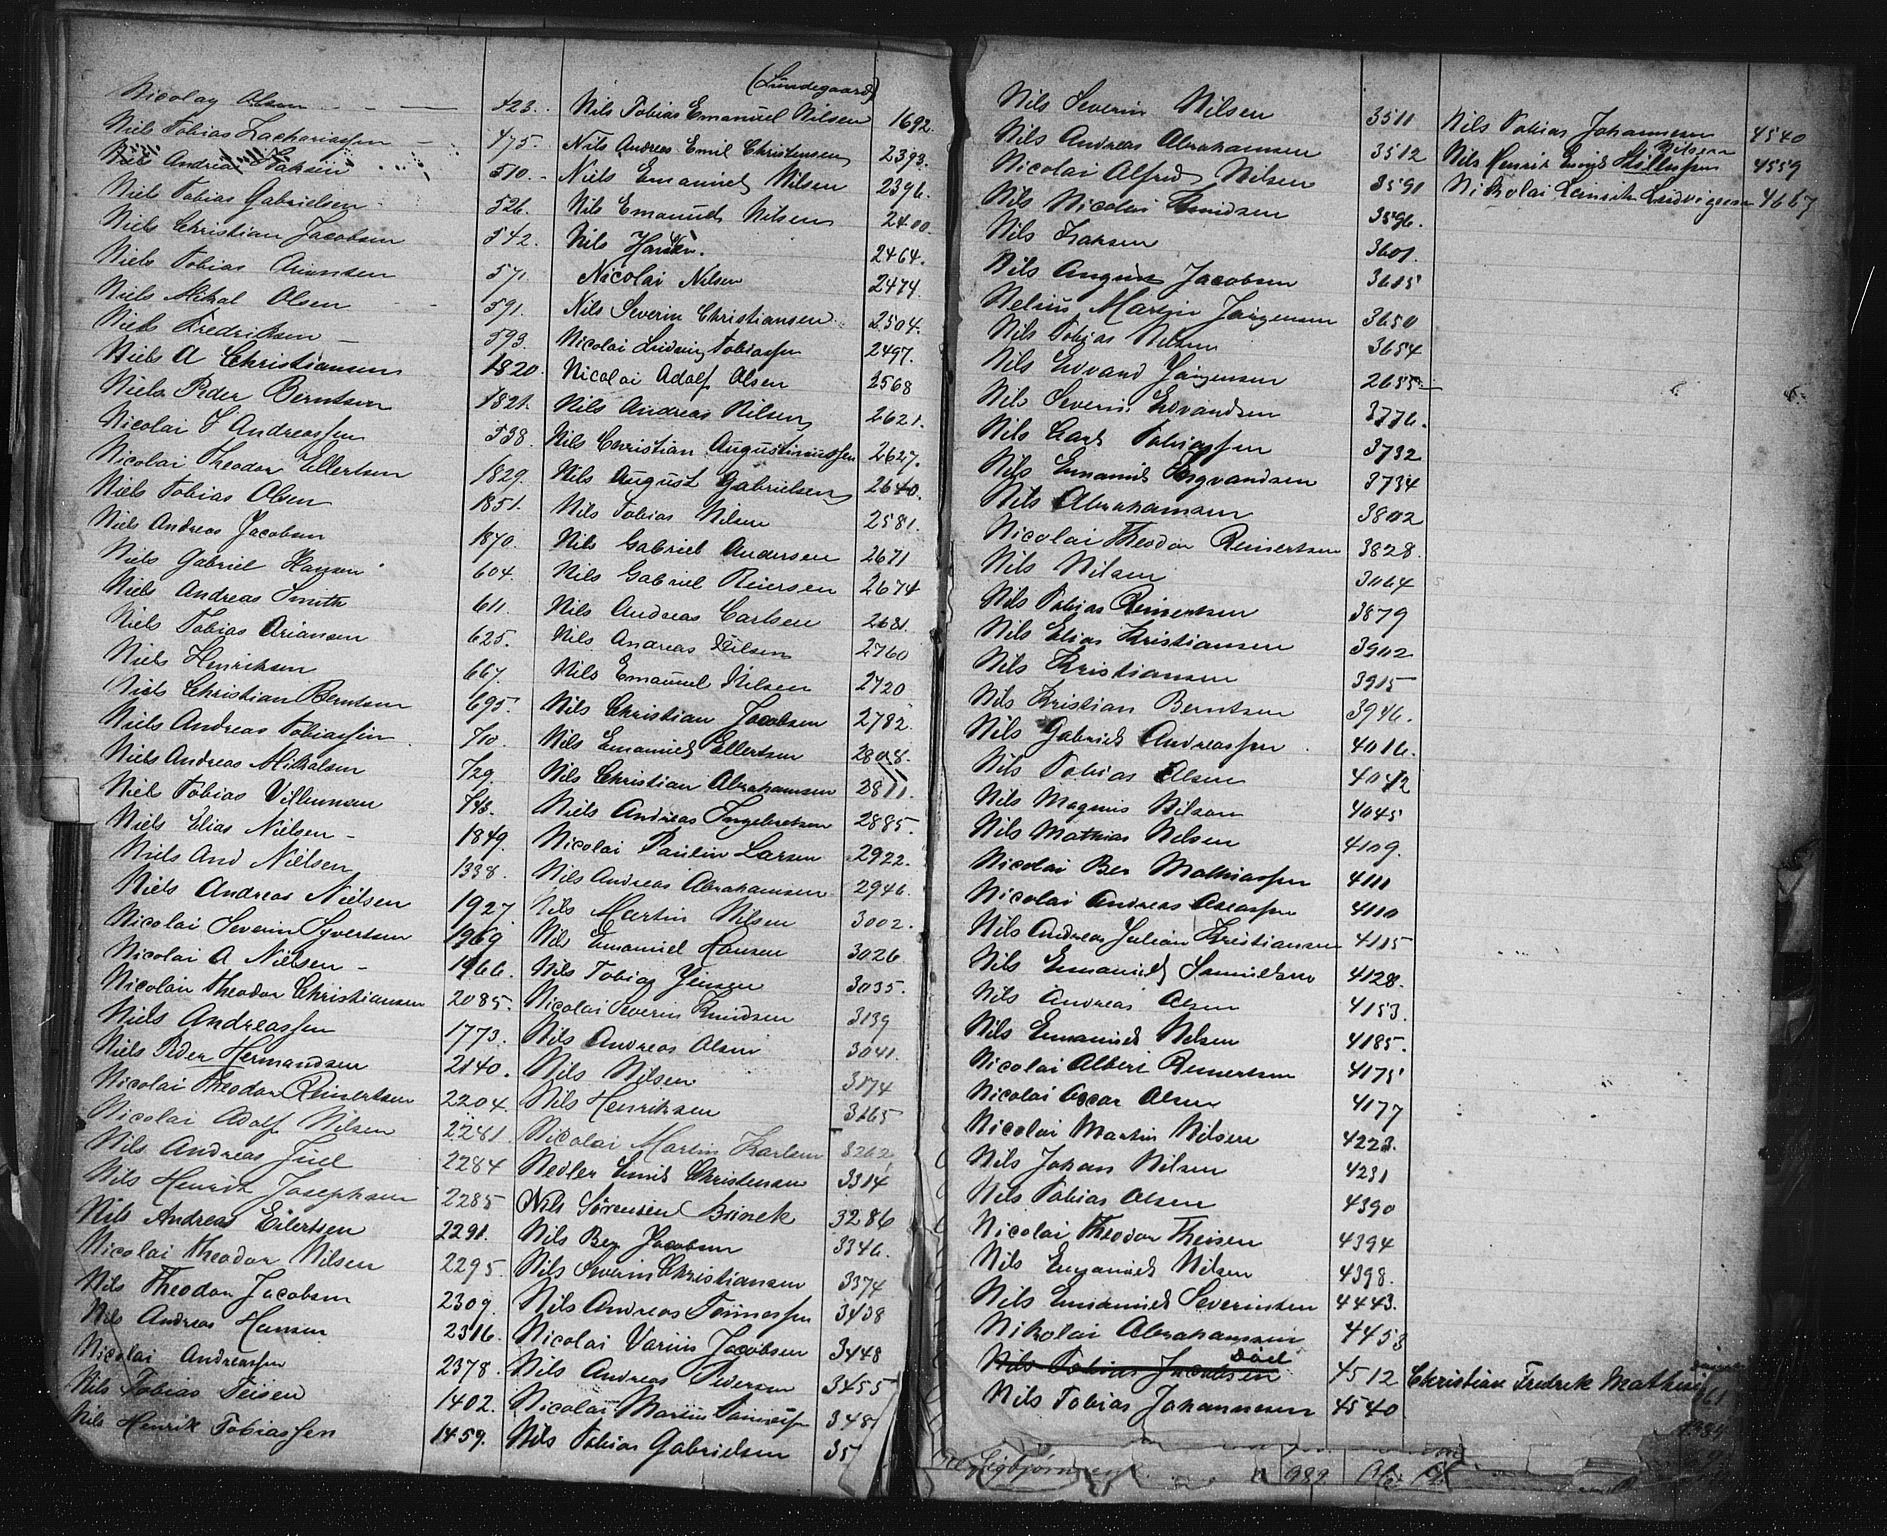 Nicolay Olsen 423.
Niels Tobias Zachariassen 475.
Niels Andreas Isaksen 510.
Niels Tobias Gabrielsen 526.
Niels Christian Jacobsen 542.
Niels Tobias Arientsen 571.
Niels Mikal Olsen 591.
Niels Fredriksen 593.
Niels A Christiansen 1820.
Niels Peder Berntsen 1821.
Nicolai S Andreassen 538.
Nicolai Theodor Ellertsen 1829.
Niels Tobias Olsen 1851.
Niels Andreas Jacobsen 1870.
Niels Gabriel Hansen 604.
Niels Andreas Smith 611.
Niels Tobias Ariansen 625.
Niels Henriksen 667.
Niels Christian Berntsen 695.
Niels Andreas Tobiassen 710.
Niels Andreas Mikalsen 729.
Niels Tobias Villumsen
Niels Elias Nielsen 1849.
Niels And Nielsen 1338.
Niels Andreas Nielsen 1927.
Nicolai Severin Syvertsen 1969
Nicolai A Nielsen 1966.
Nicolai Theodor Christiansen 2085.
Niels Andreassen 1773.
Niels Peder Hermandsen 2140.
Nicolai Theodor Reinertsen 2204.
Nicolai Adolf Nilsen 2281.
Nils Andreas Juel 2284
Nils Henrik Josephsen 2285
Nils Andreas Eilertsen 2291.
Nicolai Theodor Nilsen 2295.
Nils Theodor Jacobsen 2309.
Nils Andreas Hansen 2316.
Nicolai Andreassen 2378.
Nils Tobias Teisen 1402.
Nils Henrik Tobiassen 1459.
(Lundegaard)
Nils Tobias Emanuel Nilsen 1692.
Nils Andreas Emil Christensen 2393.
Niels Emanuel Nilsen 2396.
Nils Emanuel Nilsen 2400.
Nils Hansen. 2464.
Nicolai Nilsen 2474.
Nils Severin Christiansen 2504.
Nicolai Ludvig Tobiassen 2497.
Nicolai Adolf Olsen 2568
Nils Andreas Nilsen 2621.
Nils Christian Augustinussen 2627.
Nils August Gabrielsen 2640.
Nils Tobias Nilsen 2581.
Nils Gabriel Andersen 2671
Nils Gabriel Reiersen 2674
Nils Andreas Carlsen 2681.
Nils Andreas Nilsen 2760
Nils Emanuel Nilsen 2720
Nils Christian Jacobsen 2782.
Nils Emanuel Ellertsen 2808.
Nils Christian Abrahamsen 2811.
Nils Andreas Ingebretsen 2885.
Nicolai Paulin Larsen 2922.
Nils Andreas Abrahamsen 2946.
Nils Martin Nilsen 3002.
Nils Emanuel Hansen 3026
Nils Tobias Jensen 3035.
Nicolai Severin Knudsen 3139
Nils Andreas Olsen 3041.
Nils Nilsen 3174
Nils Henriksen 3165
Nicolai Martin Karlsen 3262
Nedler Emil Christensen 3314
Nils Sørensen Brinck 3286
Nils Ber Jacobsen 3346.
Nils Severin Christiansen 3374
Nils Andreas Tønnessen 3438
Nicolai Varius Jacobsen 3448
Nils Andreas Pedersen 3455
Nicolai Marius 348
Nils Tobias Gabrielsen 35
Nils Severin Nilsen 3511
Nils Andreas Abrahamsen 3512
Nicolai Alfred Nilsen 3591
Nils Nicolai Knudsen 3596.
Nils Isaksen 3601.
Nils August Jacobsen 3615
Nelius Martin Jørgensen 3650
Nils Tobias Nilsen 3654
Nils Edvard Jørgensen 2655
Nils Severin Edvardsen 3776.
Nils Carl Tobiassen 3732
Nils Emanuel Ingvardsen 3734
Nils Abrahamsen 3802
Nicolai Theodor Reinertsen 3828.
Nils Nilsen 3064
Nils Tobias Reinertsen 3879
Nils Elias Kristiansen 3902
Nils Kristiansen 3915
Nils Kristian Berntsen 3946.
Nils Gabriel Andreassen 4016.
Nils Tobias Olsen 4042
Nils Magnus Nilsen 4045
Nils Mathias Nilsen 4109.
Nicolai Ber Mathiassen 4111
Nicolai Andreas Aseassen 4110
Nils Andreas Julian Kristiansen 4115
Nils Emanuel Samuelsen 4128.
Nils Andreas Olsen 4153.
Nils Emanuel Nilsen 4185.
Nicolai Albert Reinertsen 4175
Nicolai Oscar Olsen 4177
Nicolai Martin Nilsen 4223.
Nils Johan Nilsen 4231
Nils Tobias Olsen 4390
Nicolai Theodor Theisen 4394
Nils Emanuel Nilsen 4398.
Nils Emanuel Severinsen 4443.
Nikolai Abrahamsen 4453
død
Nils Tobias Jacobsen 4512
Nils Tobias Johannesen 4540
Nils Tobias Johannesen 4540
Nilsen
Nils Henrik 4559
Nikolai Lauritz Ludvigsen 4667
Christian Fredrik
982